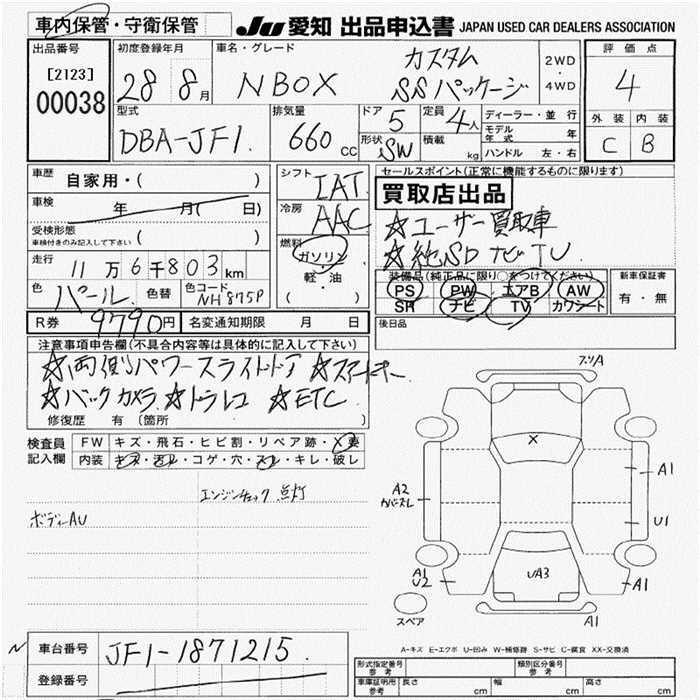 車内保管・守衛保管 JU 愛知 出品申込書 JAPAN USED CAR DEALERS ASSOCIATION
出品番号 初度登録年月 車名・グレード 評価点
[2123] 00038 28 8月 NBOX カスタム SSパッケージ 2WD・4WD 4
型式 排気量 ドア 定員 ディーラー・並行 外装 内装
DBA-JF1 660 CC 5 4人 モデル年式 年 C B
形状 SW 積載 kg ハンドル 左・右
車歴 自家用・( ) シフト IAT セールスポイント(正常に機能するものに限ります)
車検 年 月( 日) 冷房 AAC 買取店出品
受検形態 ( ) ☆ユーザー買取車
車検付きのみ記入して下さい 燃料 ガソリン ☆純SDナビTV
走行 11万6千803km 軽・油 ( ) 装備品(純正品に限り○をつけてください) 新車保証書
色 パール 色替 色コード NH875P PS PW エアB AW 有・無
R券 9790円 名変通知期限 月 日 SR ナビ TV カワシート
後日品
注意事項申告欄(不具合内容等は具体的に記入して下さい)
☆両側パワースライドドア ☆スマートキー
☆バックカメラ ☆ドラレコ ☆ETC
修復歴 有(箇所 )
検査員記入欄 FW キズ・飛石・ヒビ割・リペア跡・X要
内装 キズ・汚レ・コゲ・穴・スレ・キレ・破レ
エンジンチェック 点灯
ボディーAU
X
A1
A2
カバースレ
U1
A1
U2
UA3
A1
スペア
A1
A-キズ E-エクボ U-凹み W-補修跡 S-サビ C-腐食 XX-交換済
N 車台番号 JF1-1871215
登録番号
形式指定番号 参考 類別区分番号 参考
車庫証明用 参考 長さ cm 幅 cm 高さ cm